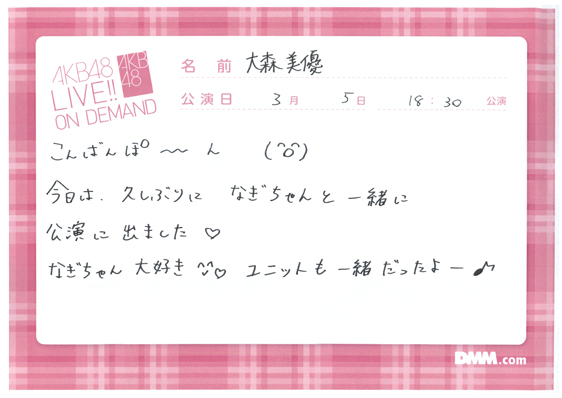 AKB48
LIVE!!
ON DEMAND
AKB
48
名 前 大森美優
公演日 3月 5日 18:30 公演
こんばんぽ〜〜ん (^o^)
今日は、久しぶりに なぎちゃんと一緒に
公演に出ました♡
なぎちゃん大好き ^^♡ ユニットも一緒だったよー♪
DMM.com